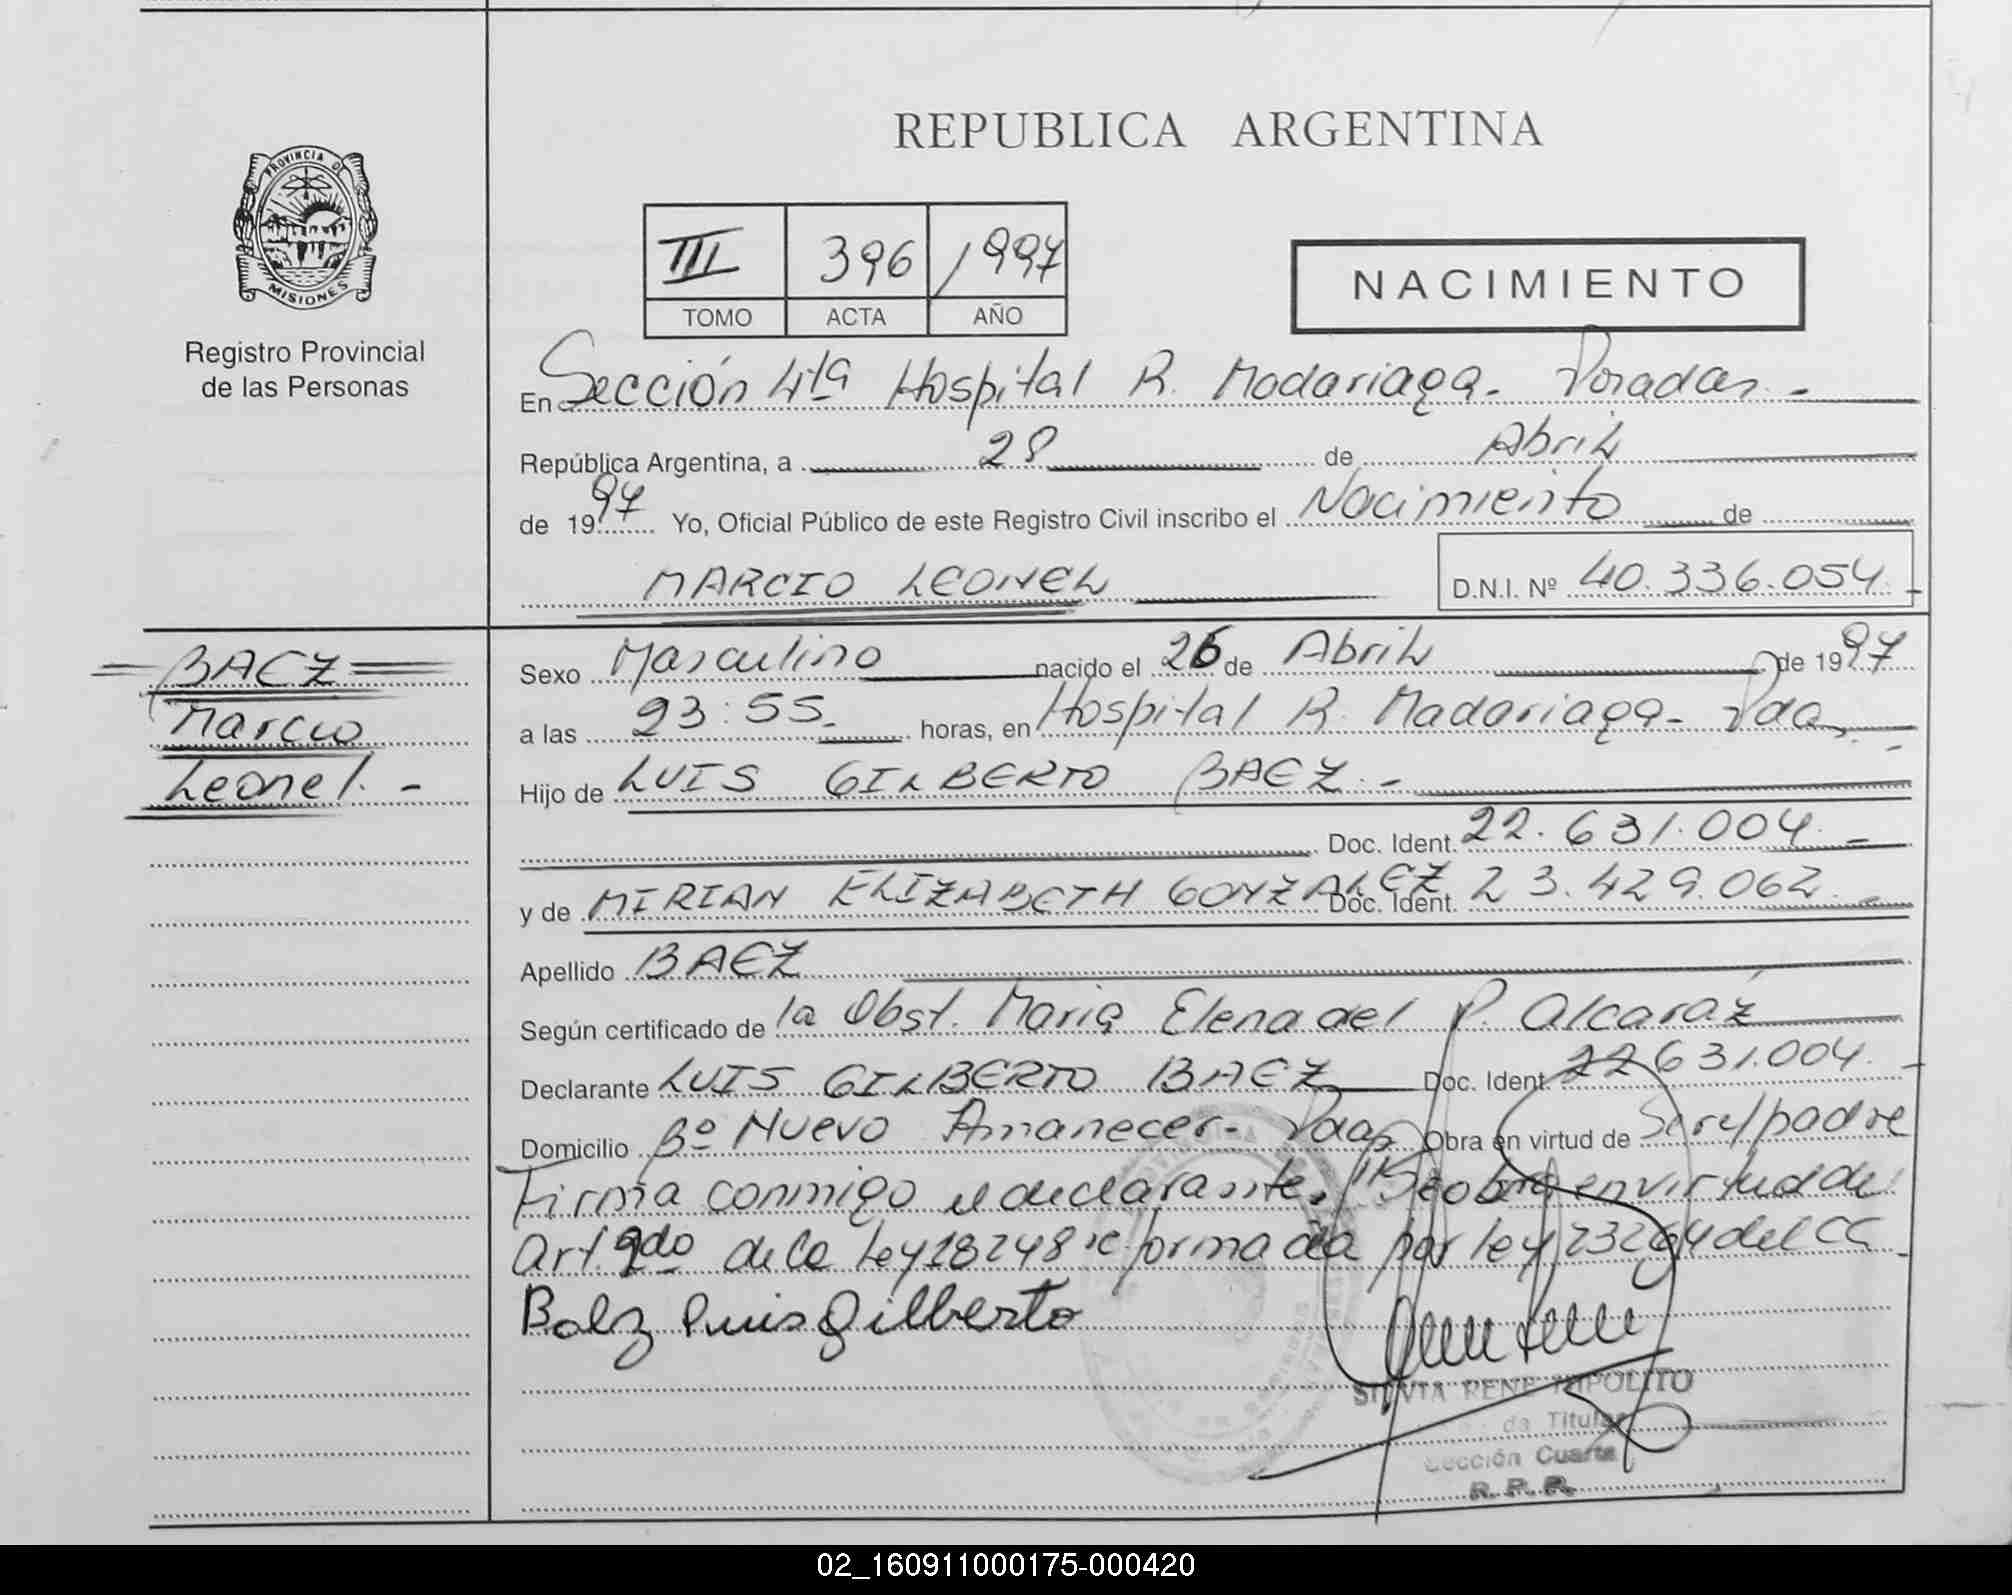 REPUBLICA ARGENTINA
PROVINCIA DE
MISIONES
Registro Provincial
de las Personas
III 396 1997
TOMO ACTA AÑO
NACIMIENTO
En Sección 4ta Hospital R. Madariaga. Posadas. -
República Argentina, a 28 de Abril
de 1997 Yo, Oficial Público de este Registro Civil inscribo el Nacimiento de
MARCIO LEONEL D.N.I. Nº 40.336.054. -
BAEZ
Marcio
Leonel. -
Sexo Masculino nacido el 26 de Abril de 1997
a las 23:55. horas, en Hospital R. Madariaga - Pdas. -
Hijo de LUIS GILBERTO BAEZ. -
Doc. Ident. 22.631.004. -
y de MIRIAN ELIZABETH GONZALEZ Doc. Ident. 23.429.062. -
Apellido BAEZ
Según certificado de la Obst. Maria Elena del P. Alcaráz
Declarante LUIS GILBERTO BAEZ Doc. Ident 22631.004. -
Domicilio Bº Nuevo Amanecer - Pdas Obra en virtud de Ser el padre
Firma conmigo el declarante, obra en virtud del
Art. 2do de la Ley 18248 reformada por ley 23264 del CC -
Baez Luis Gilberto
SILVIA RENE HIPOLITO
da Titular
Sección Cuarta
R. P. P.
02_160911000175-000420